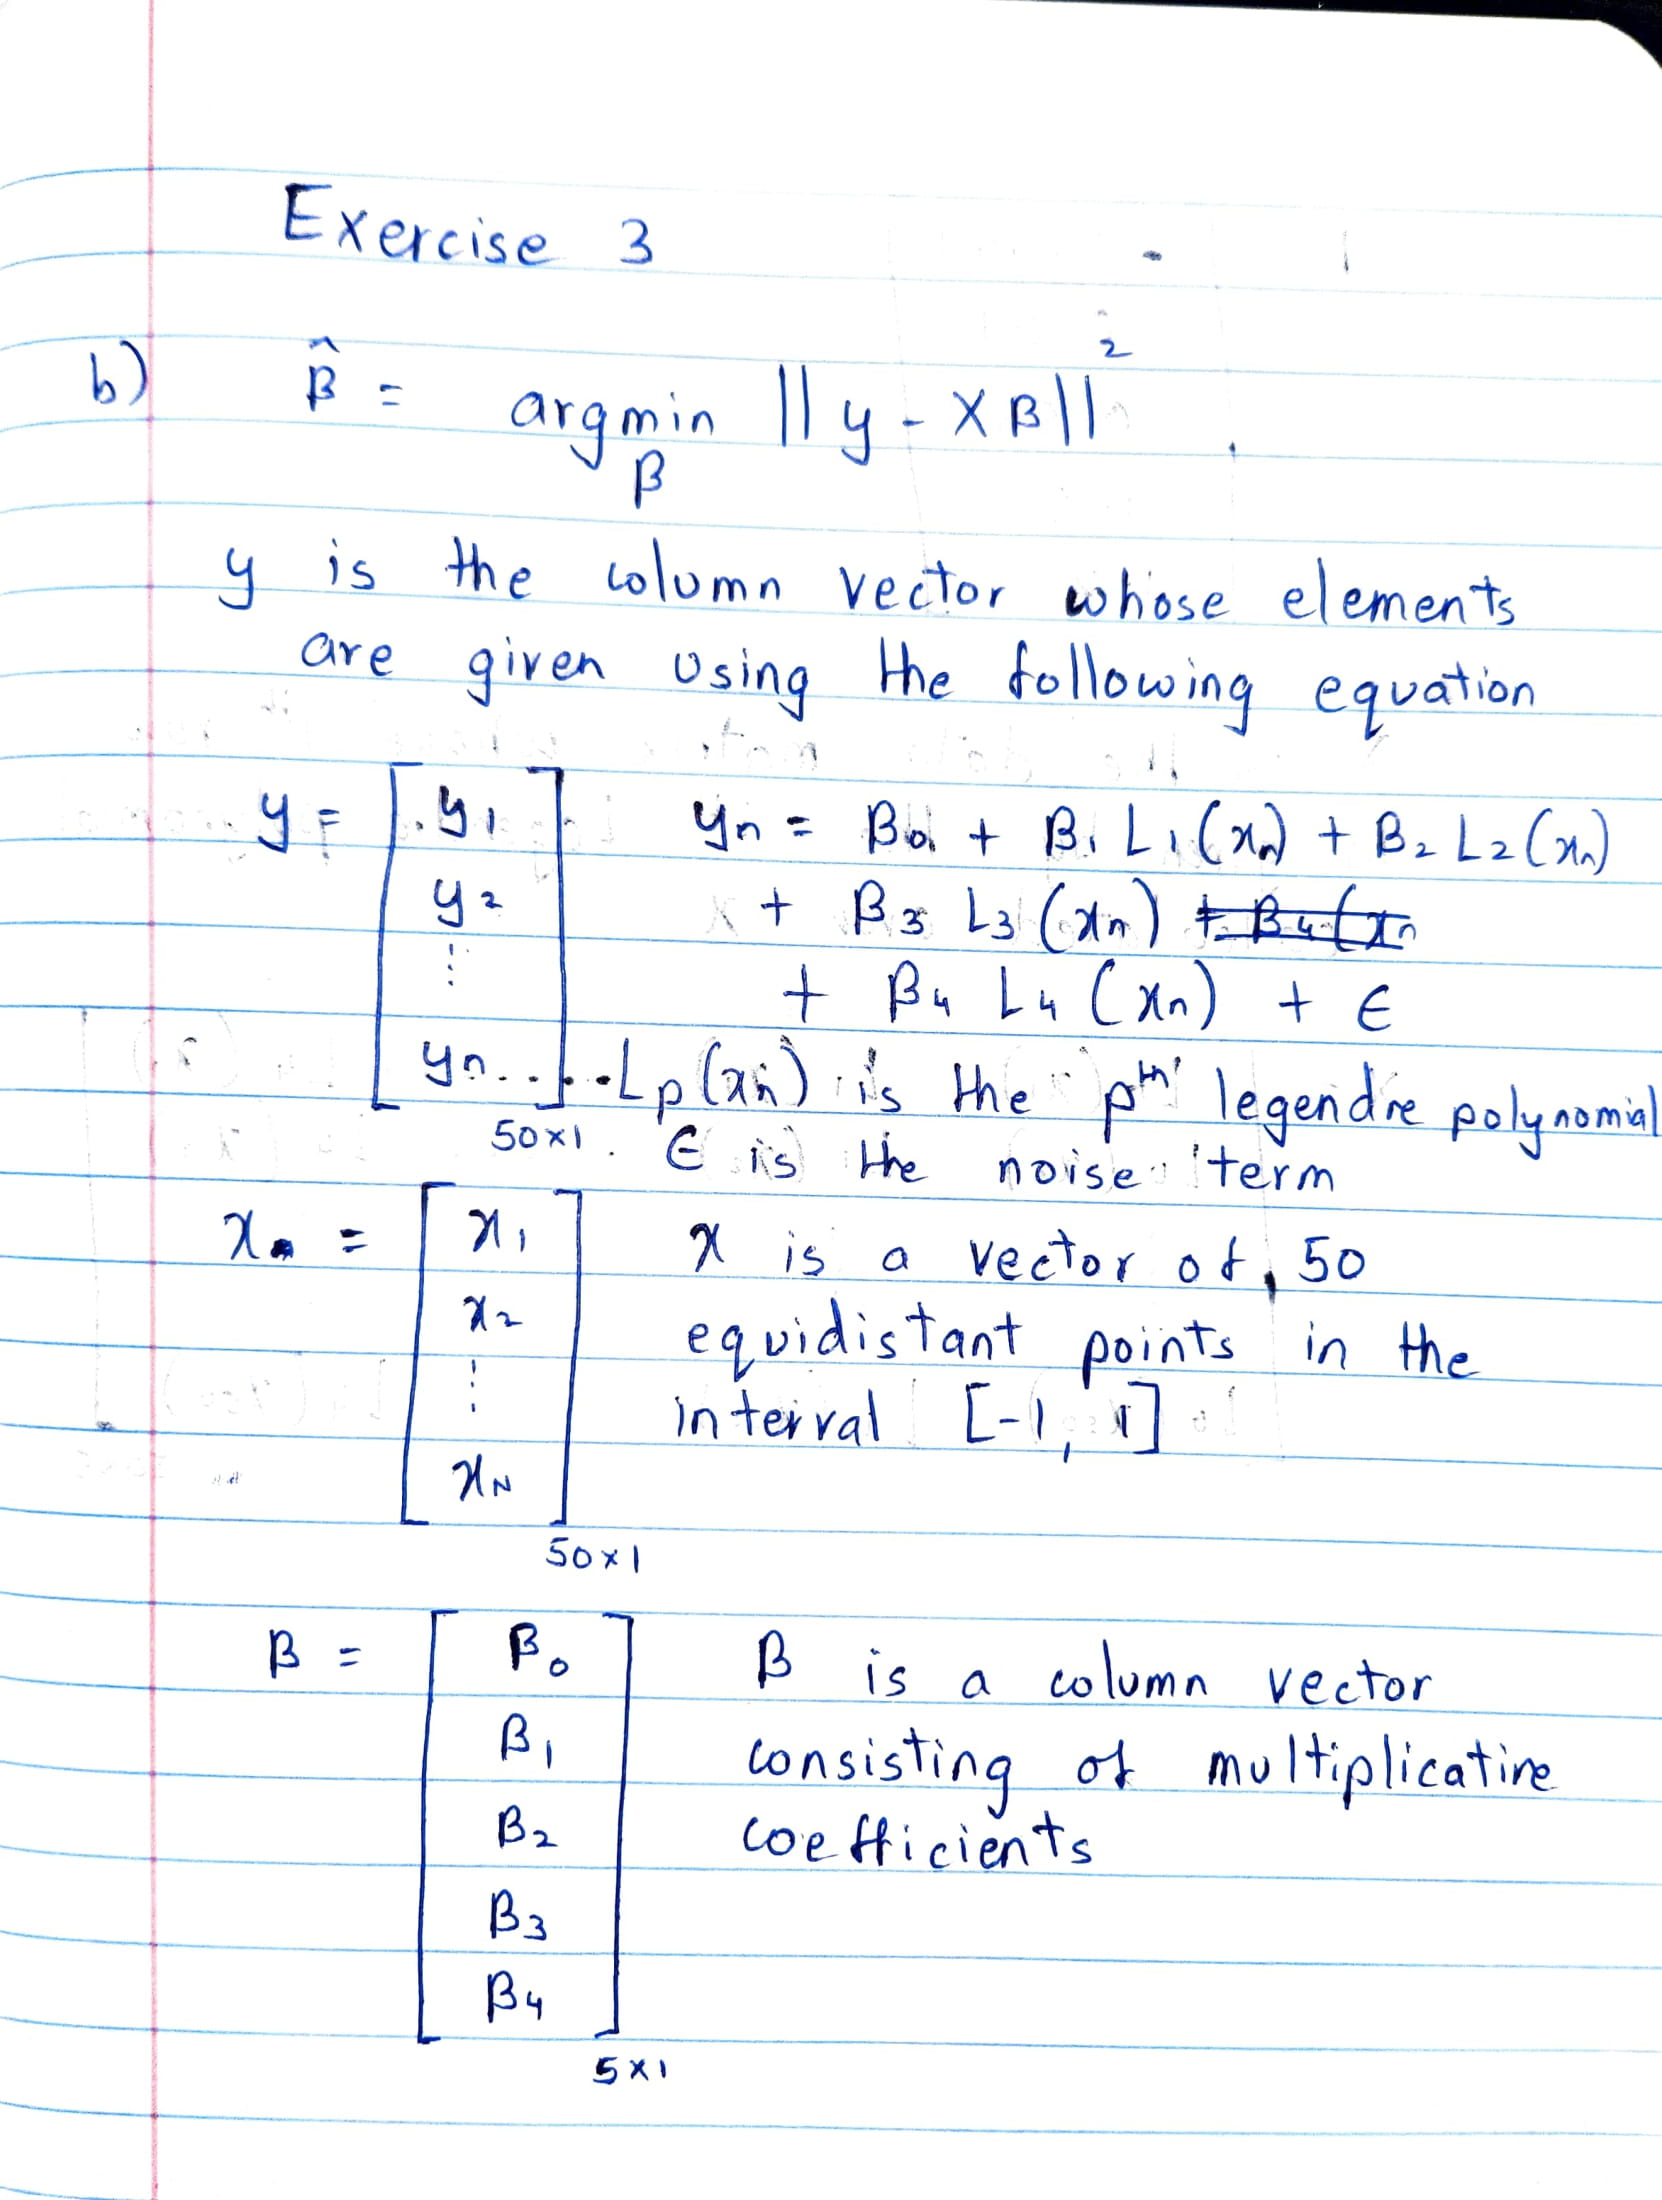 Exercise 3
b) β̂ = argmin ||y - Xβ||²
β
y is the column vector whose elements
are given using the following equation
y = [ y₁ y₂ ⋮ yₙ ] 50x1
yₙ = β₀ + β₁ L₁(xₙ) + β₂ L₂(xₙ)
+ β₃ L₃(xₙ) + β₄(xₙ
+ β₄ L₄(xₙ) + ε
Lₚ(xₙ) is the pᵗʰ legendre polynomial
ε is the noise term
x = [ x₁ x₂ ⋮ x_N ] 50x1
x is a vector of 50
equidistant points in the
interval [-1, 1]
β = [ β₀ β₁ β₂ β₃ β₄ ] 5x1
β is a column vector
consisting of multiplicative
coefficients